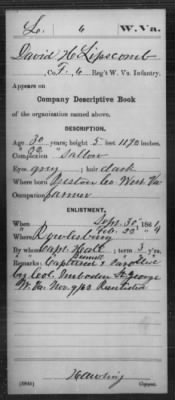 L. 6 W.Va.
David H Lipscomb
, Co. F, 6 Reg't W. Va. Infantry.
Appears on
Company Descriptive Book
of the organization named above.
DESCRIPTION.
Age 30 years; height 5 feet 11 1/2 inches.
Complexion Sallow
Eyes grey ; hair dark
Where born Preston Co West Va
Occupation Farmer
ENLISTMENT.
When Sept. 30" , 1861
Feb. 23" 4
Where Rowlesburg
By whom Capt. Hall ; term 3 y'rs.
Remarks: Captured & Paroled
by Col. Imboden St. George
W. Va. Nov 9/62
Copyist.